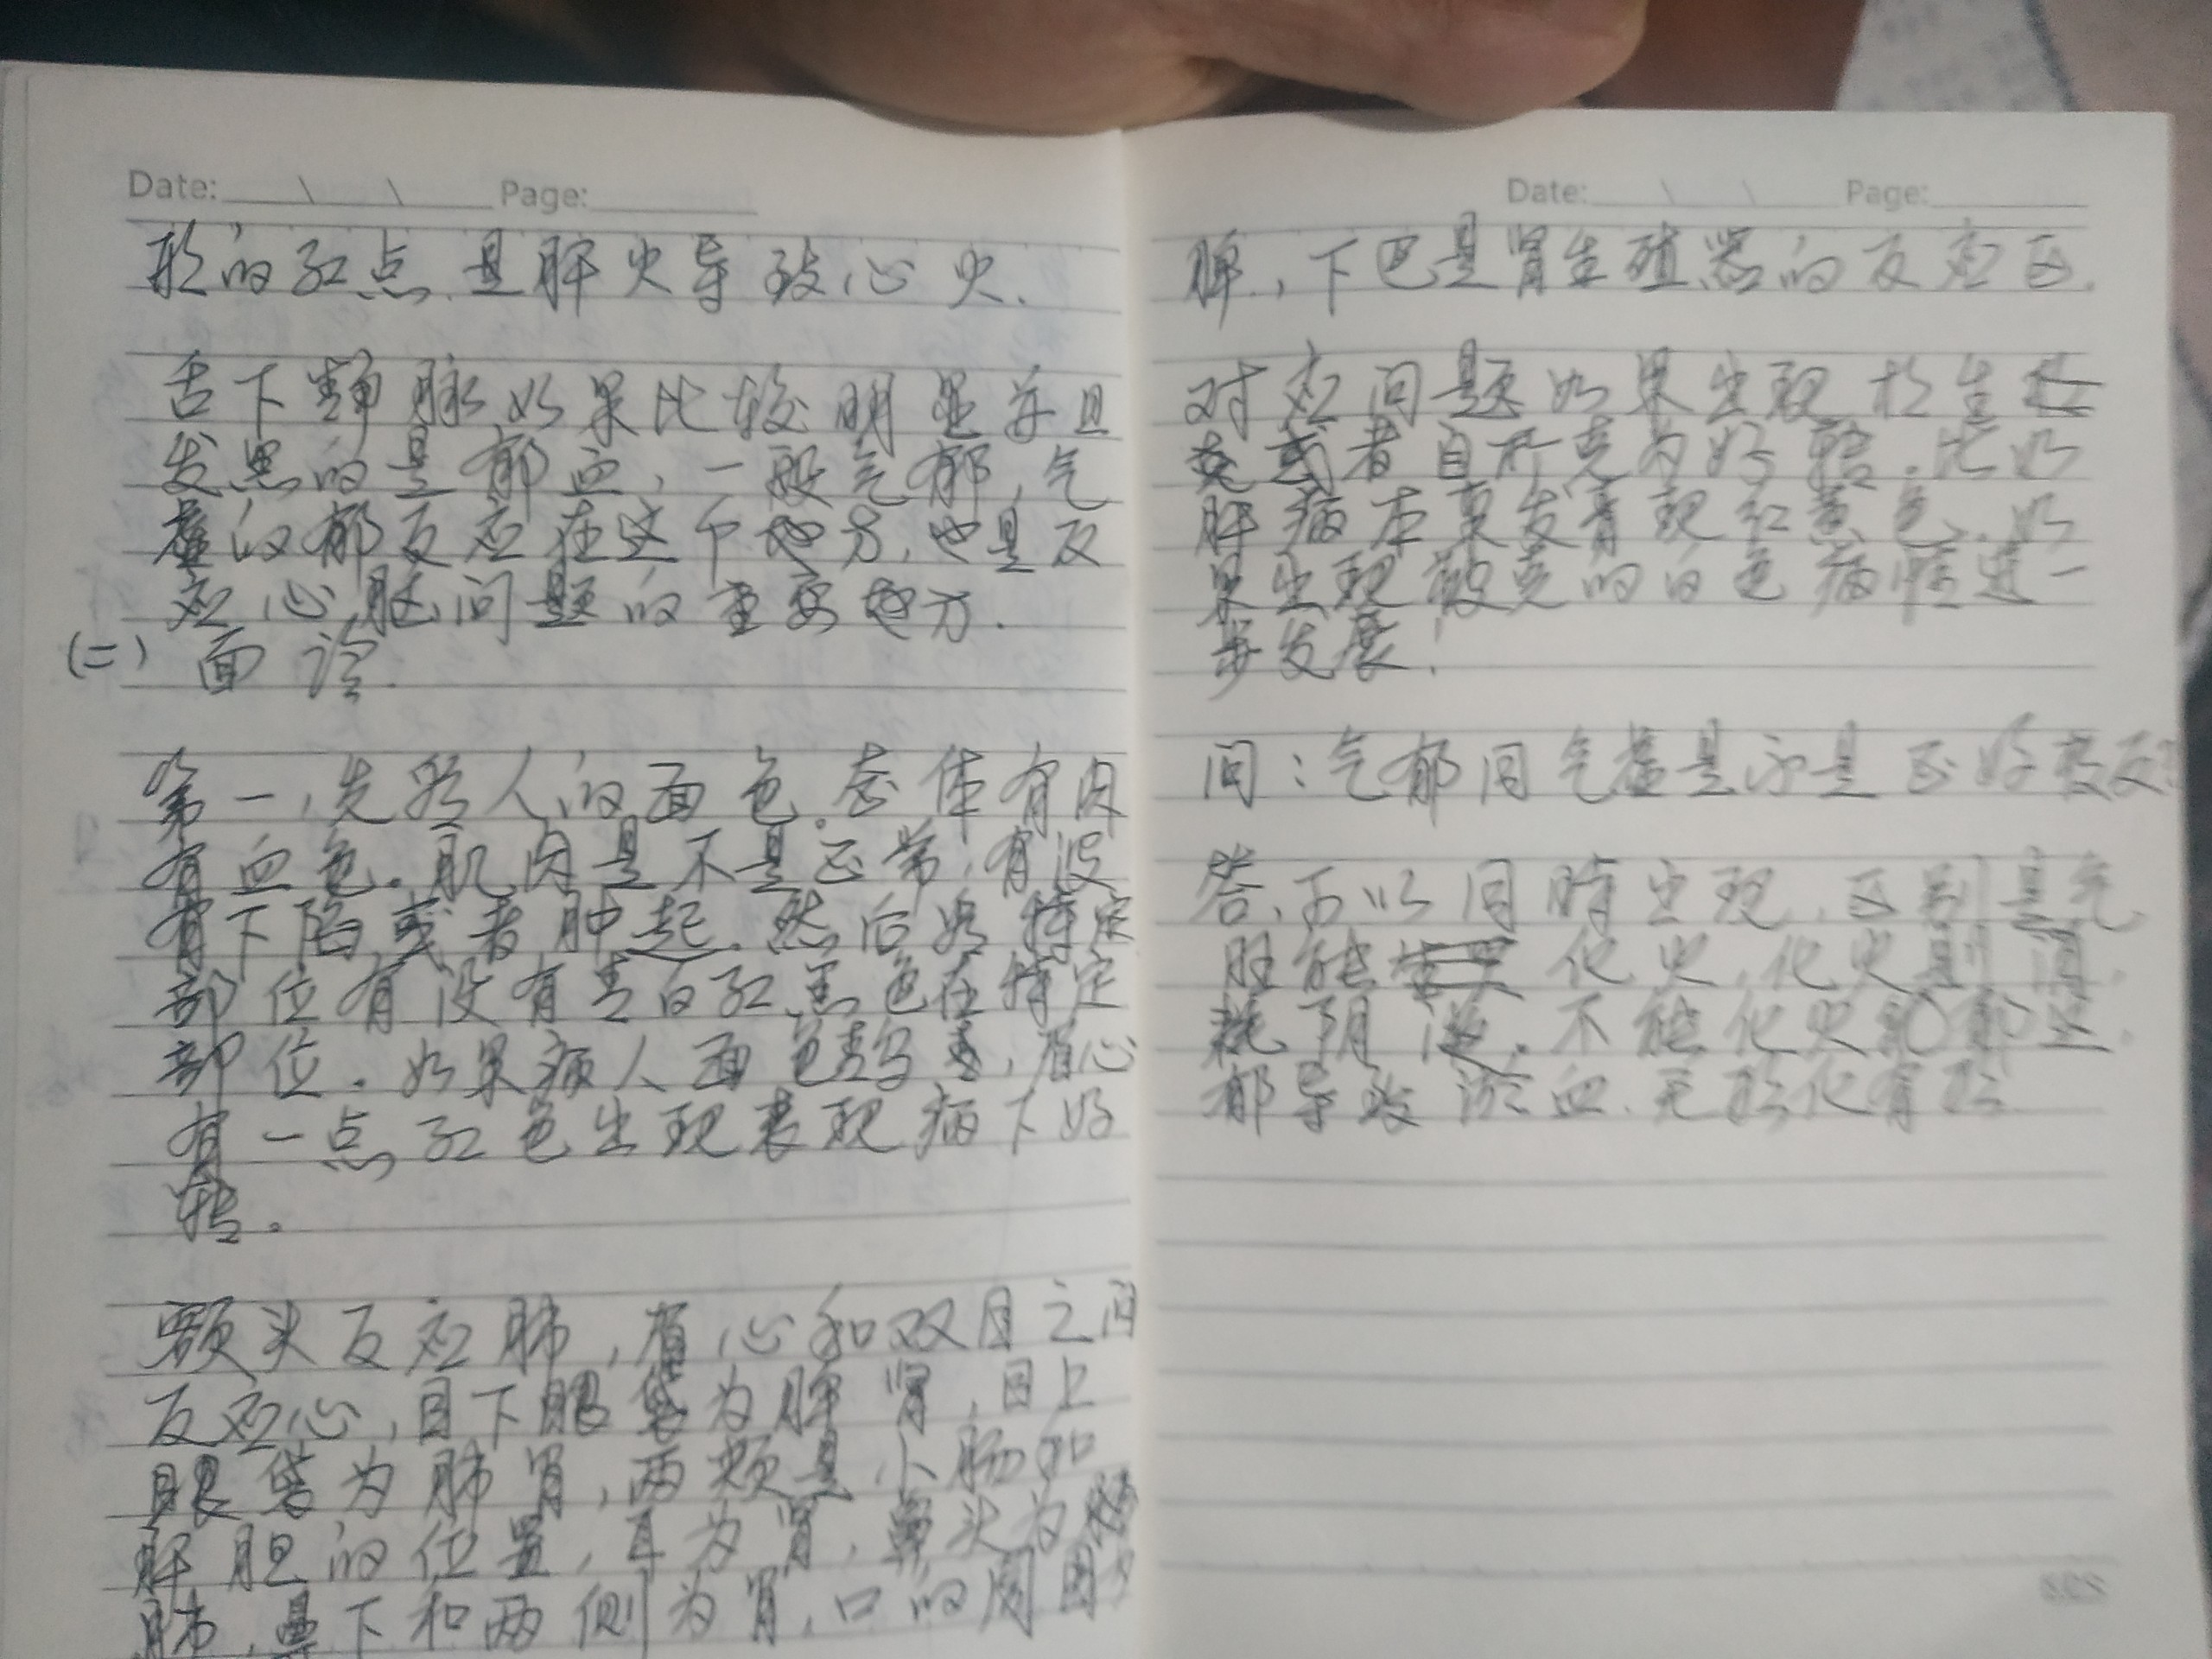 Date: Page:
形的红点是肝火导致心火.
舌下静脉如果比较明显并且
发黑的是郁血,一般气郁,气
虚的郁反应在这个地方,也是反
应心脏问题的重要地方.
(二) 面诊.
第一,先 人的面色.整体有肉
有血色.肌肉是不是正常,有没
有下陷或者肿起.然后 特定
部位有没有青白红黑色在特定
部位.如果病人面色 ,眉心
有一点红色出现表现病下好
转.
额头反应肺,眉心和双目之间
反应心,目下眼袋为脾肾,目上
眼袋为肺胃,两颊是小肠和
肝胆的位置,耳为肾,鼻头为
肺,鼻下和两侧为胃,口的周围为
Date: Page:
脾,下巴是肾生殖器的反应区.
对应问题如果出现
或者自所克为好转.比如
肝病本真发青现红黄色.如
果出现被克的白色病情进一
步发展!
问:气郁同气虚是不是正好相反?
答,可以同时出现,区别是气
旺能 化火,化火则
耗阴 .不能化火
郁导致淤血.无形化有形